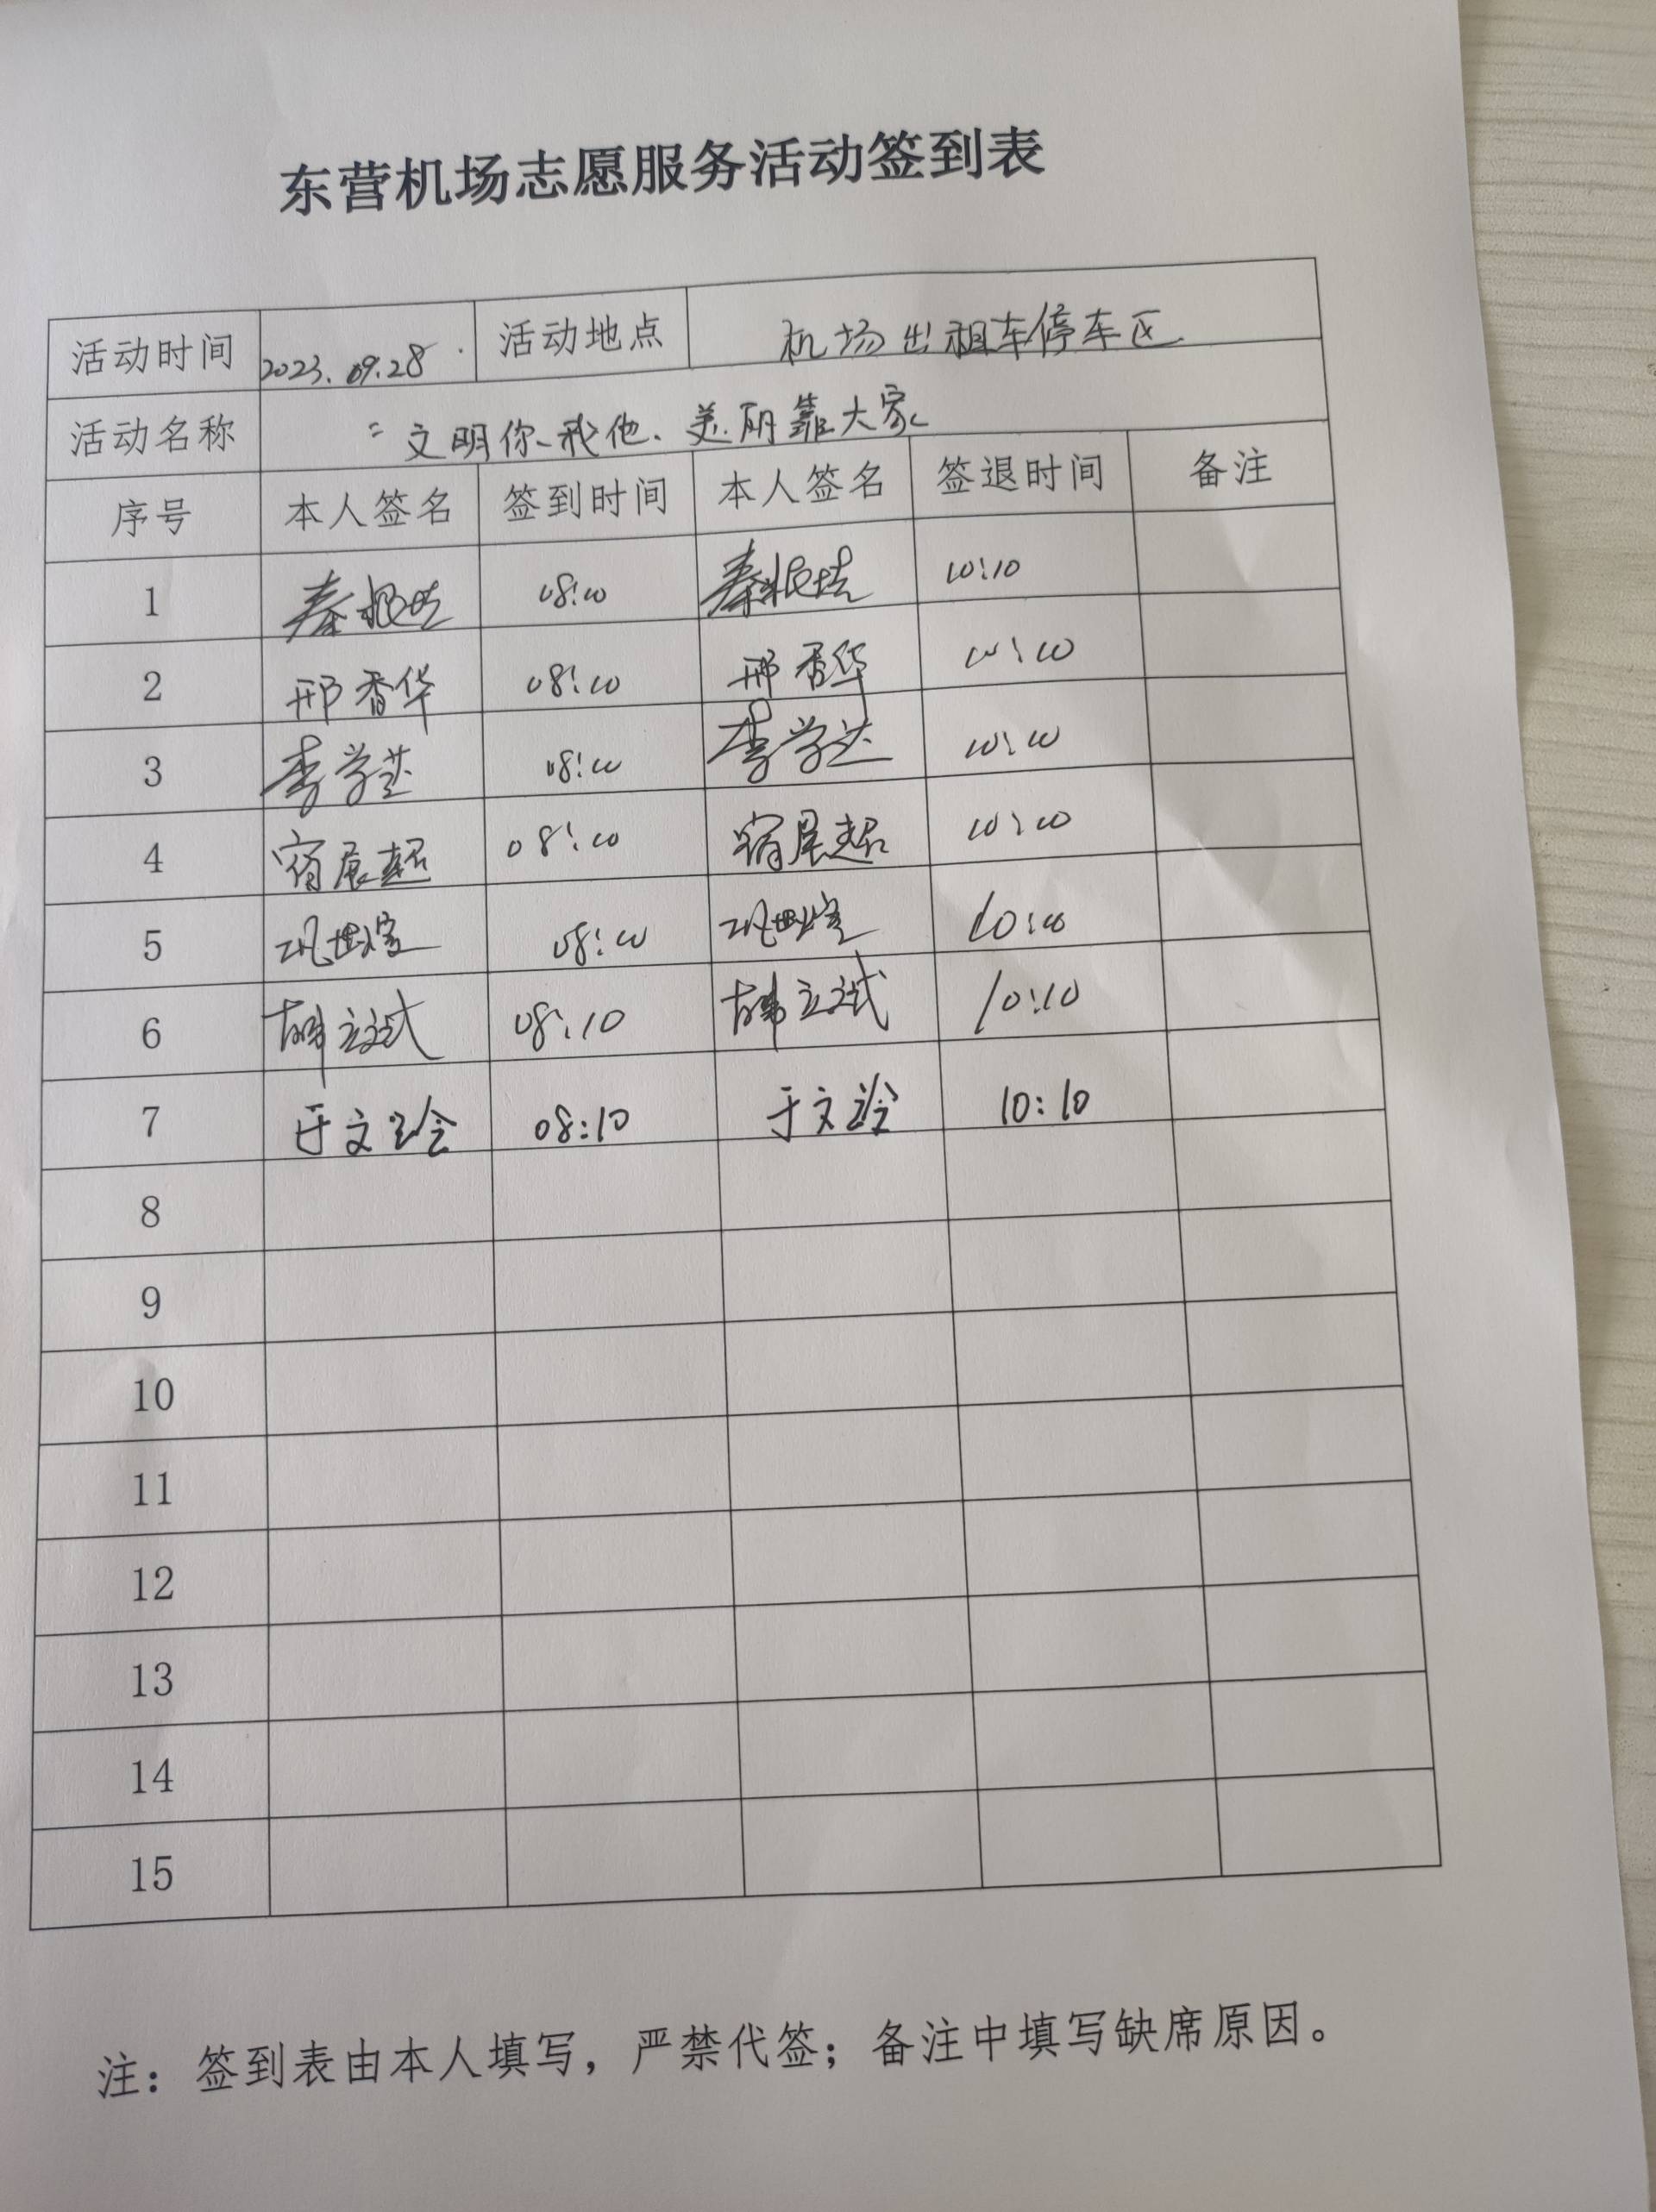 东营机场志愿服务活动签到表
活动时间 2023.09.28 活动地点 机场出租车停车区
活动名称 文明你、我、他、美丽靠大家
序号 本人签名 签到时间 本人签名 签退时间 备注
1 秦 08:10 秦 10:10
2 邢香华 08:10 邢香华 10:10
3 李学 08:10 李学 10:10
4 宿晨超 08:10 宿晨超 10:10
5 08:10 10:10
6 韩立斌 08:10 韩立斌 10:10
7 于文 08:10 于文 10:10
8
9
10
11
12
13
14
15
注：签到表由本人填写，严禁代签；备注中填写缺席原因。